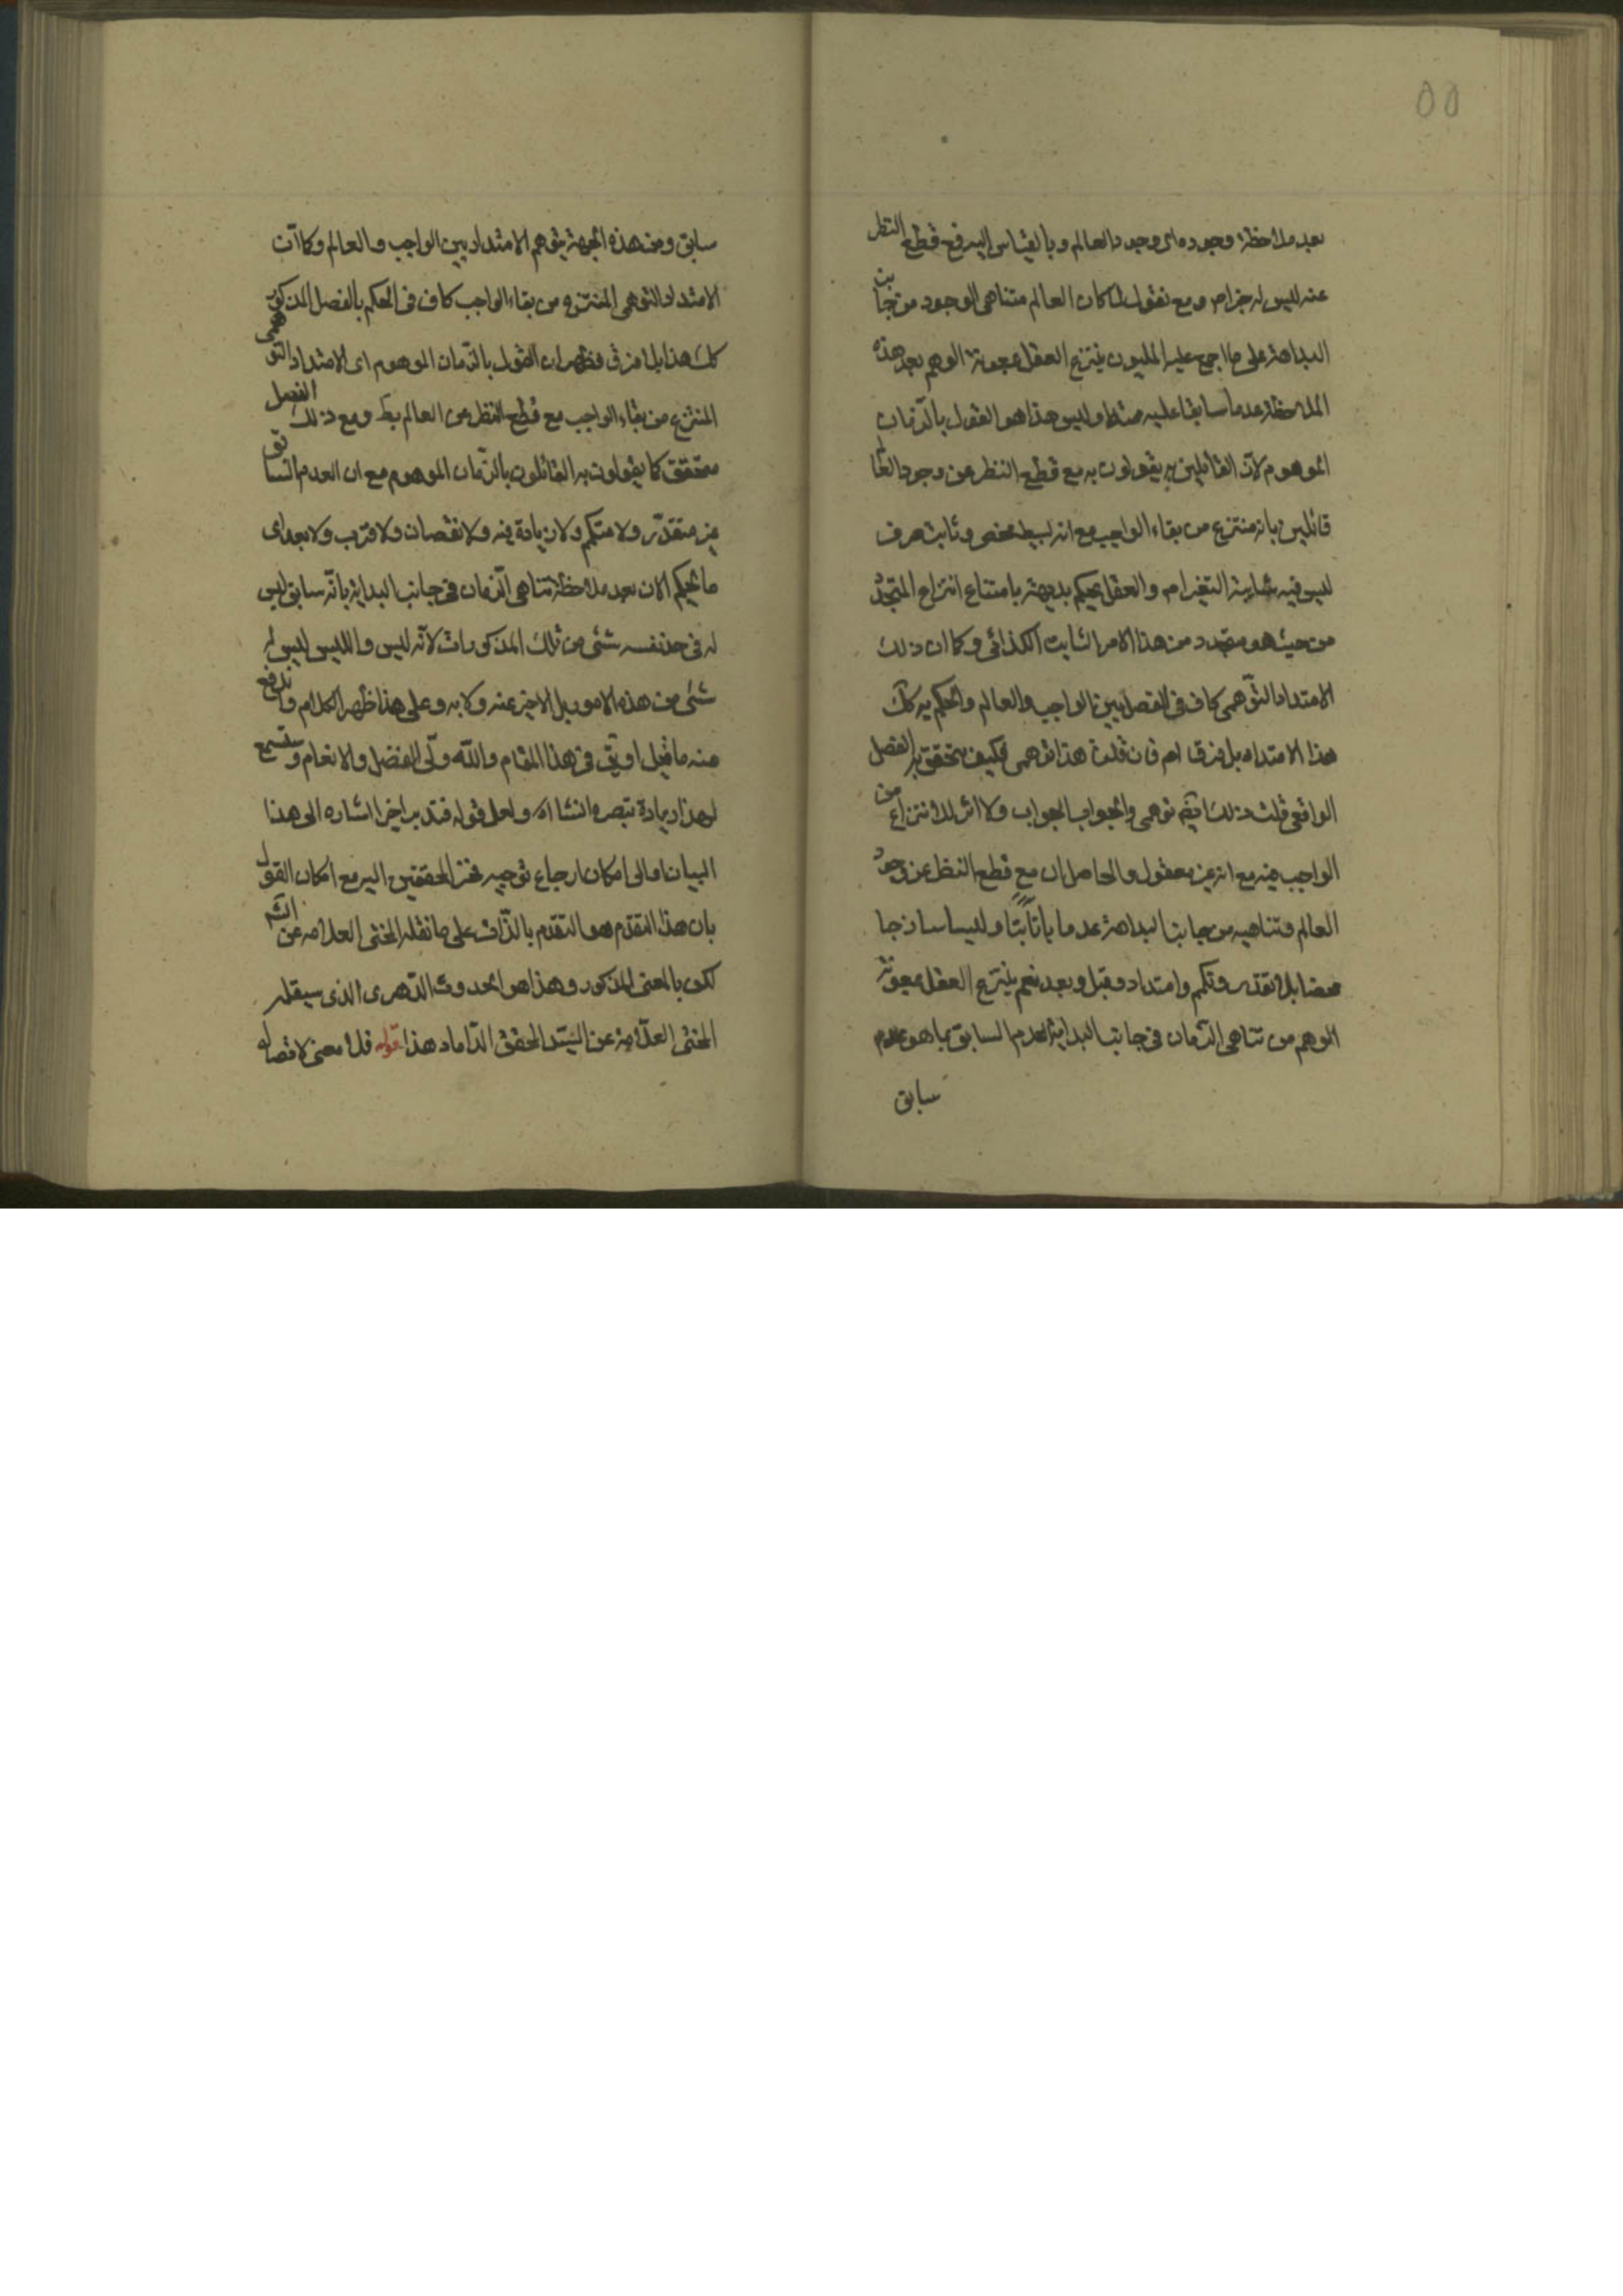 ٥٥
بعد ملاحظة وجوده اى وجود العالم وبالقياس اليه فمع قطع النظر
عنه ليس له جزام ومع نقول لما كان العالم متناهى الوجود من جانب
البداهة على ما اجمع عليه المليون ينتزع العقل بمعونة الوهم بعد هذه
الملاحظة عدما سابقا عليه ممتدا وليس هذا هو القول بالزمان
الموهوم لان القائلين به يقولون به مع قطع النظر عن وجود العالم
قائلين بانه منتزع من بقاء الواجب مع انه بسيط محض وثابت صرف
ليس فيه شايبة التغير ام والعقل يحكم بديهة بامتناع انتزاع المتجدد
من حيث هو متجدد من هذا الامر الثابت الكذائى وكما ان ذلك
الامتداد التوهمى كاف فى الفصل بين الواجب والعالم والحكم به كك
هذا الامتداد بلا فرق ام فان قلت هذا توهمى فكيف يتحقق به الفصل
الواقعى قلت ذلك ايضا توهمى والجواب الجواب ولا اثر للانتزاع من
الواجب فيه مع انه غير معقول والحاصل ان مع قطع النظر عن وجود
العالم وتناهيه من جانب البداهة عدما باتا بتا وليسا ساذجا
محضا بلا تقدر وتكمم وامتداد وقبل وبعد نعم ينتزع العقل بمعونة
الوهم من تناهى الزمان فى جانب البداية العدم السابق بما هو عدم
سابق
سابق ومن هذه الجهة يتوهم الامتداد بين الواجب والعالم وكما ان
الامتداد التوهمى المنتزع من بقاء الواجب كاف فى الحكم بالفصل المذكور
كك هذا بلا فرق فظهر ان القول بالزمان الموهوم اى الامتداد التوهمى
المنتزع من بقاء الواجب مع قطع النظر عن العالم بط ومع ذلك الفصل
متحقق كما يقولون به القائلون بالزمان الموهوم مع ان العدم السابق
غير متقدر ولا متكمم ولا زيادة فيه ولا نقصان ولا قرب ولا بعد اى
ما يحكم الان بعد ملاحظة تناهى الزمان فى جانب البداية بانه سابق ليس
له فى حد نفسه شئ من تلك المذكورات لانه ليس والليس ليس له
شئ من هذه الامور بل لا خبر عنه ولا به وعلى هذا ظهر الكلام واندفع
عنه ما قيل او يق فى هذا المقام والله ولى الفضل والانعام وستسمع
لهذا زيادة تبصرة انشا الله ولعل قوله فتدبر اخرا اشاره الى هذا
البيان والى امكان ارجاع توجيه فخر المحققين اليه مع امكان القول
بان هذا التقدم هو التقدم بالذات على ما نقله المحشى العلامه عن الشم
لكن بالمعنى المذكور وهذا هو الحدوث الدهرى الذى سينقله
المحشى العلامة عن السيد المحقق الداماد هذا قوله فلا معنى لاتصاله